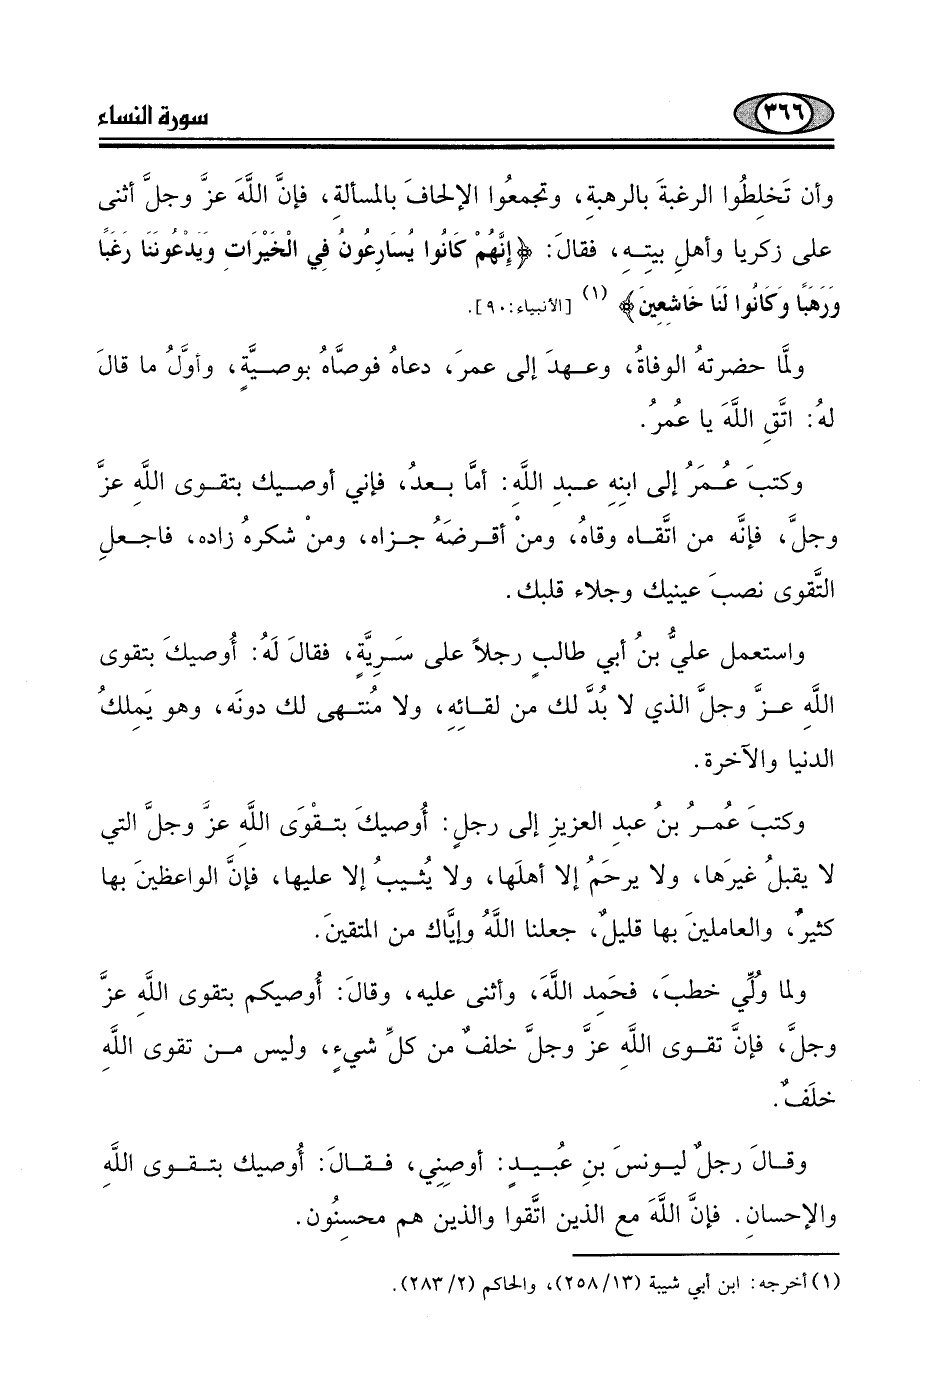 ٣٦٦
سورة النساء
وأن تَخلِطُوا الرغبةَ بالرهبةِ، وتجمعُوا الإلحافَ بالمسألةِ، فإنَّ اللَّهَ عزَّ وجلَّ أثنى
على زكريا وأهلِ بيتِـه، فقالَ: ﴿إنَّهُمْ كَانُوا يُسَارِعُونُ فِي الْخَيْرَاتِ وَيَدْعُونَنَا رَغَبًا
وَرَهَبًا وَكَانُوا لَنَا خَاشِعِينَ﴾ (١) [الأنبياء:٩٠].
ولمَّا حضرتهُ الوفاةُ، وعـهدَ إلى عمرَ، دعاهُ فوصَّاهُ بوصـيَّةٍ، وأوَّلُ ما قالَ
لهُ: اتَّقِ اللَّهَ يا عُمرُ.
وكتبَ عُـمَرُ إلى ابنِهِ عـبدِ اللَّهِ: أمَّا بـعدُ، فإني أوصـيك بتقـوى اللَّهِ عزَّ
وجلَّ، فإنَّه من اتَّقـاه وقاهُ، ومنْ أقـرضَهُ جـزاه، ومنْ شكرهُ زاده، فاجـعلِ
التَّقوى نصبَ عينيك وجلاء قلبك.
واستعمل عليُّ بنُ أبي طالبٍ رجلاً على سَـرِيَّةٍ، فقالَ لَهُ: أُوصيكَ بتقوى
اللَّهِ عـزَّ وجلَّ الذي لا بُدَّ لك من لقـائِهِ، ولا مُنتـهى لك دونَه، وهو يَملكُ
الدنيا والآخرة.
وكتبَ عُمـرُ بنُ عبدِ العزيزِ إلى رجلٍ: أُوصيكَ بتـقْوَى اللَّهِ عزَّ وجلَّ التي
لا يقبلُ غيرَها، ولا يرحَمُ إلا أهلَها، ولا يُثـيبُ إلا عليها، فإنَّ الواعظينَ بها
كثيرٌ، والعاملينَ بها قليلٌ، جعلنا اللَّهُ وإيَّاك من المتقينَ.
ولما وُلِّي خطبَ، فحَمِد اللَّهَ، وأثنى عليه، وقالَ: أُوصيكم بتقوى اللَّهِ عزَّ
وجلَّ، فإنَّ تقـوى اللَّهِ عزَّ وجلَّ خلفٌ من كلِّ شيءٍ، وليس مـن تقوى اللَّهِ
خلَفٌ.
وقـالَ رجلٌ ليـونسَ بنِ عُبـيدٍ: أوصِني، فـقـالَ: أُوصيك بتـقـوى اللَّهِ
والإحسانِ. فإنَّ اللَّهَ مع الذين اتَّقوا والذين هم محسِنُون.
(١) أخرجه: ابن أبي شيبة (١٣/ ٢٥٨)، والحاكم (٢/ ٢٨٣).